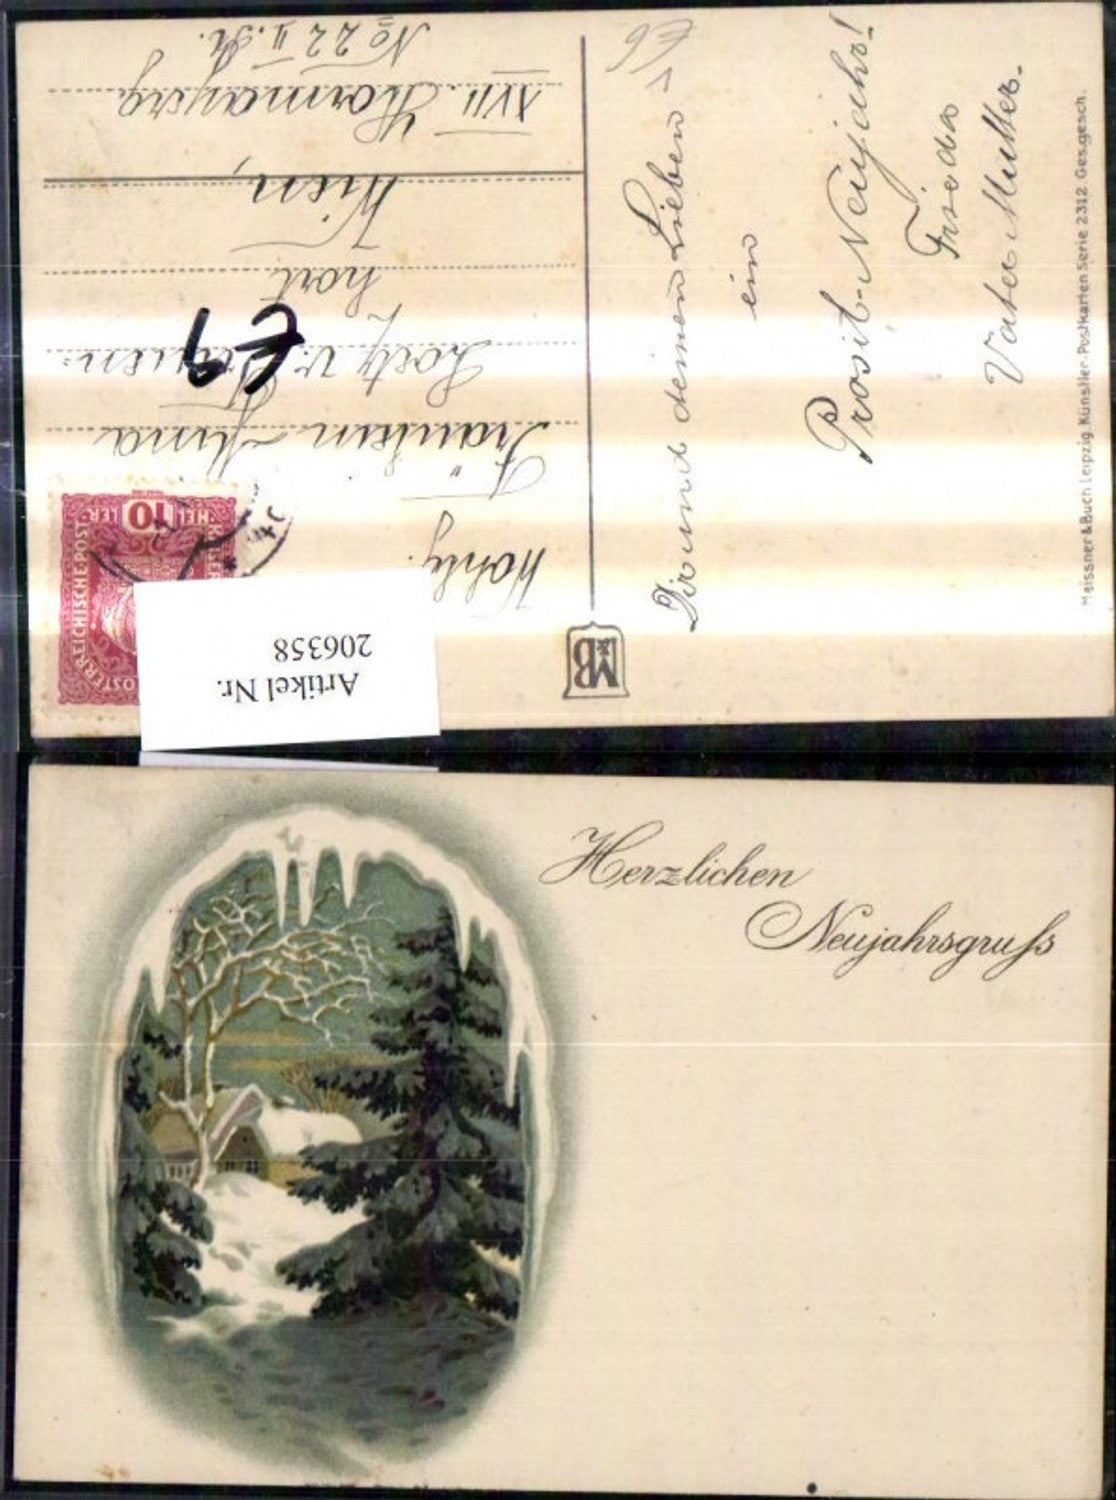 Wohlg.
Fräulein Anna
Wien,
XVII. Hormayrg.
No 22 II. St.
€ 9
10
HELLER
KAISERL
ÖSTERREICHISCHE POST
Artikel Nr.
206358
MB
&
und deinen Lieben
ein
Prosit-Neujahr!
Vater Mutter.
Meissner & Buch Leipzig. Künstler-Postkarten Serie 2312 Ges.gesch.
Herzlichen
Neujahrsgruſs